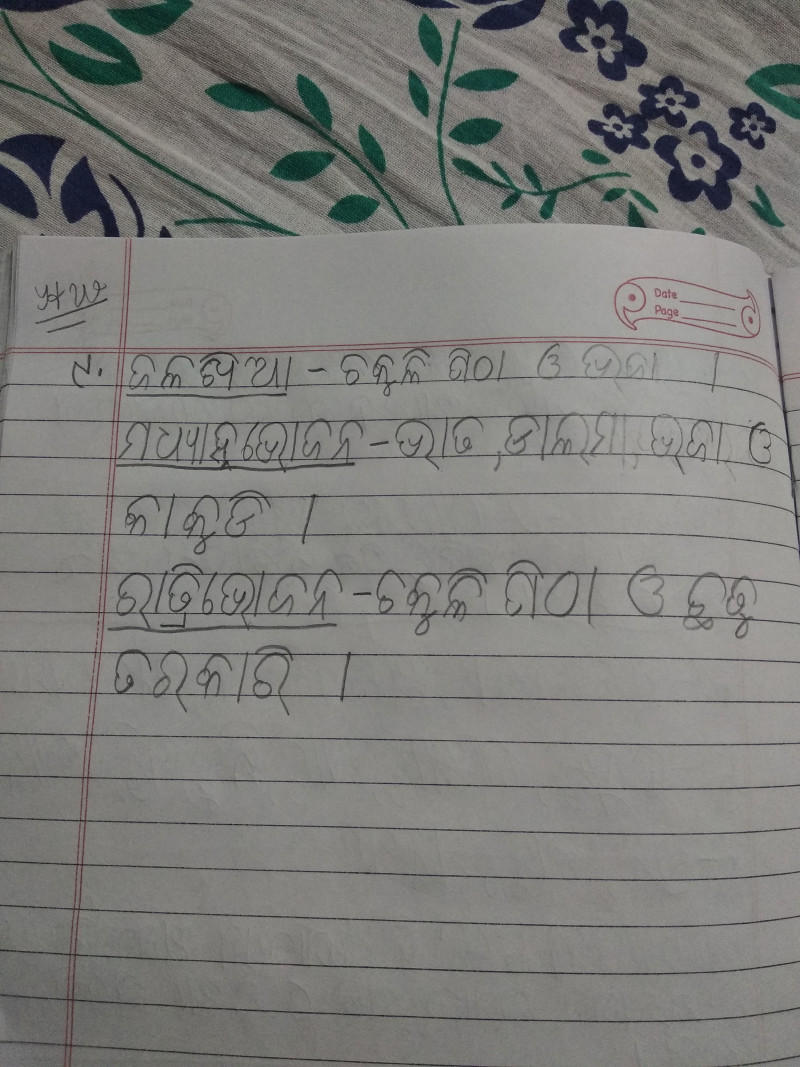 HW
Date
Page
୯. ଜଳଖିଆ - ଚକୁଳି ପିଠା ଓ ଭଜା ।
ମଧ୍ୟାହ୍ନଭୋଜନ - ଭାତ, ଡାଲମା, ଭଜା ଓ
କାକୁଡି ।
ରାତ୍ରିଭୋଜନ - ଚକୁଳି ପିଠା ଓ ଛତୁ
ତରକାରି ।